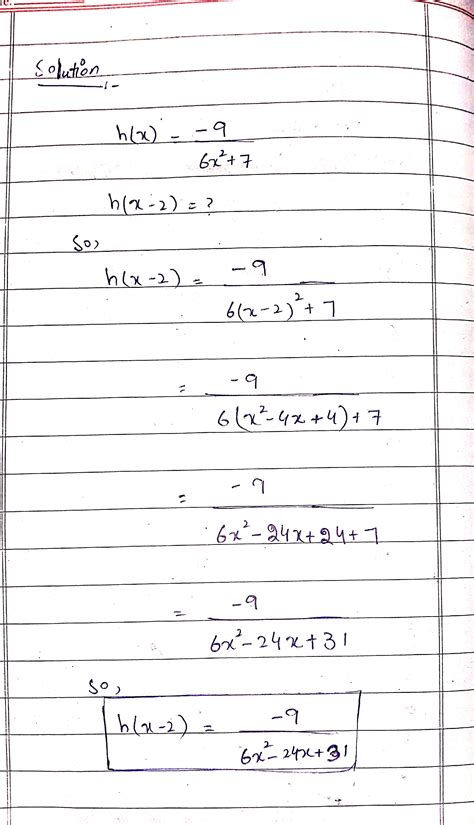 Solution :-
h(x) = -9 / 6x²+7
h(x-2) = ?
So,
h(x-2) = -9 / 6(x-2)²+7
= -9 / 6(x²-4x+4)+7
= -9 / 6x²-24x+24+7
= -9 / 6x²-24x+31
So,
h(x-2) = -9 / 6x²-24x+31